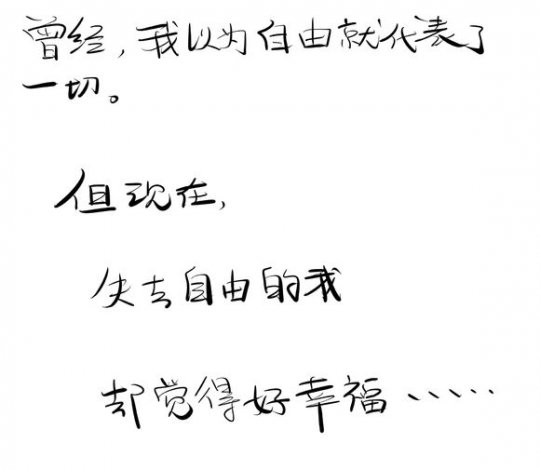 曾经，我以为自由就代表了
一切。
但现在，
失去自由的我
却觉得好幸福……